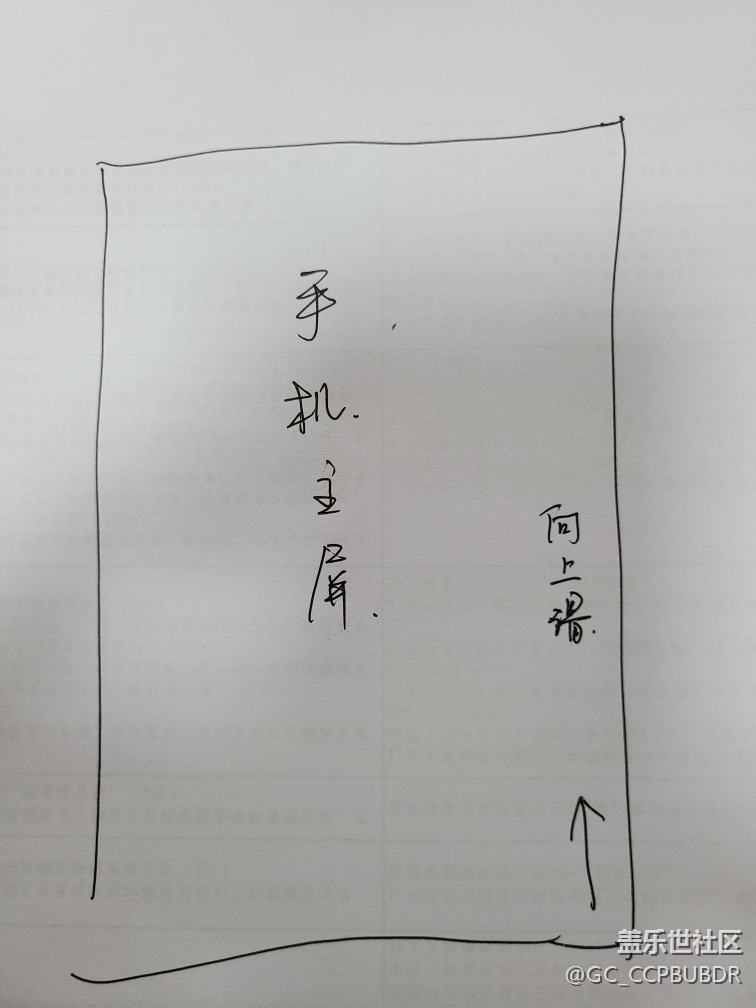 手机主屏
向上滑
盖乐世社区
@GC_CCPBUBDR